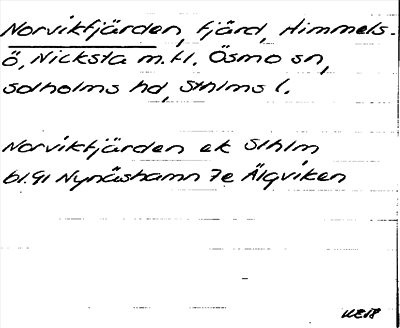 Norvikfjärden, fjärd, Himmels-
ö, Nicksta m.fl. Ösmo sn,
Solholms hd, Sthlms l.
Norvikfjärden ek Sthlm
bl.91 Nynäshamn 7e Älgviken